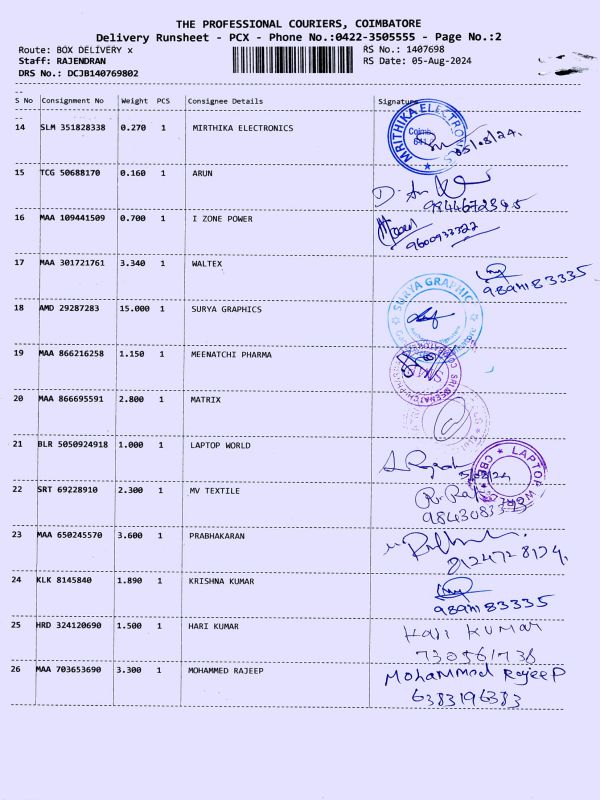 THE PROFESSIONAL COURIERS, COIMBATORE
Delivery Runsheet - PCX - Phone No.:0422-3505555 - Page No.:2
Route: BOX DELIVERY x RS No.: 1407698
Staff: RAJENDRAN RS Date: 05-Aug-2024
DRS No.: DCJB140769802
S No Consignment No Weight PCS Consignee Details Signature
14 SLM 351828338 0.270 1 MIRTHIKA ELECTRONICS
MRITHIKA ELECTRONICS
05/8/24.
15 TCG 50688170 0.160 1 ARUN
16 MAA 109441509 0.700 1 I ZONE POWER
9600933322
17 MAA 301721761 3.340 1 WALTEX
9894183335
18 AMD 29287283 15.000 1 SURYA GRAPHICS
SURYA GRAPHIC
19 MAA 866216258 1.150 1 MEENATCHI PHARMA
20 MAA 866695591 2.800 1 MATRIX
21 BLR 5050924918 1.000 1 LAPTOP WORLD
LAPTOP WORLD
22 SRT 69228910 2.300 1 MV TEXTILE
23 MAA 650245570 3.600 1 PRABHAKARAN
24 KLK 8145840 1.890 1 KRISHNA KUMAR
9894183335
25 HRD 324120690 1.500 1 HARI KUMAR
Hari Kumar
26 MAA 703653690 3.300 1 MOHAMMED RAJEEP
Mohammed Rajeep
6383196383